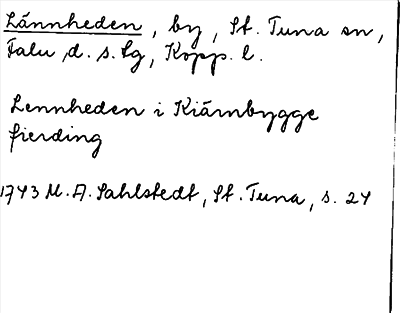 Lännheden, by, St. Tuna sn,
Falu d. s. lg, Kopp. l.
Lennheden i Kiärnbygge
fierding
1743 M. A. Sahlstedt, St. Tuna, s. 24